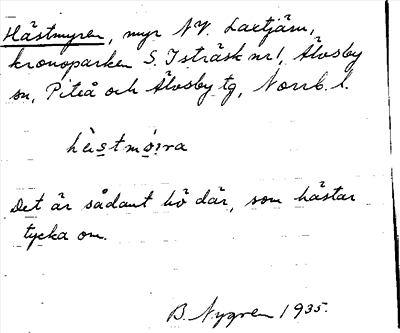 Hästmyren, myr NV. Laxtjärn,
kronoparken S. Isträsk nr 1, Älvsby
sn, Piteå och Älvsby tg, Norrb. l.
hèistmo̱i̱ra
Det är sådant hö där, som hästar
tycka om.
B. Nygren 1935.